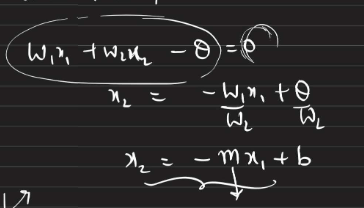 w₁x₁ + w₂x₂ - θ = 0
x₂ = -w₁x₁/w₂ + θ/w₂
x₂ = -mx₁ + b